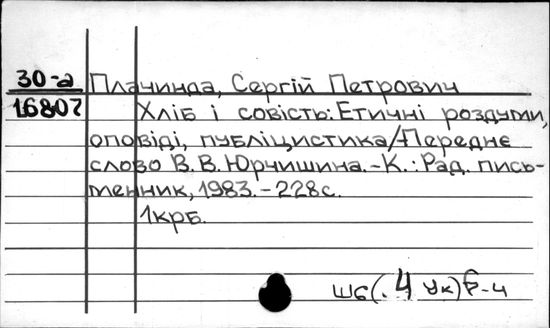 30-а Плачинда, Сергій Петрович
16807 Хліб і совість: Етичні роздуми,
оповіді, публіцистика/Переднє
слово В.В.Юрчишина.-К.: Рад. пись-
менник, 1983.-228с.
1крб.
Ш6(.4 Ук)6-4